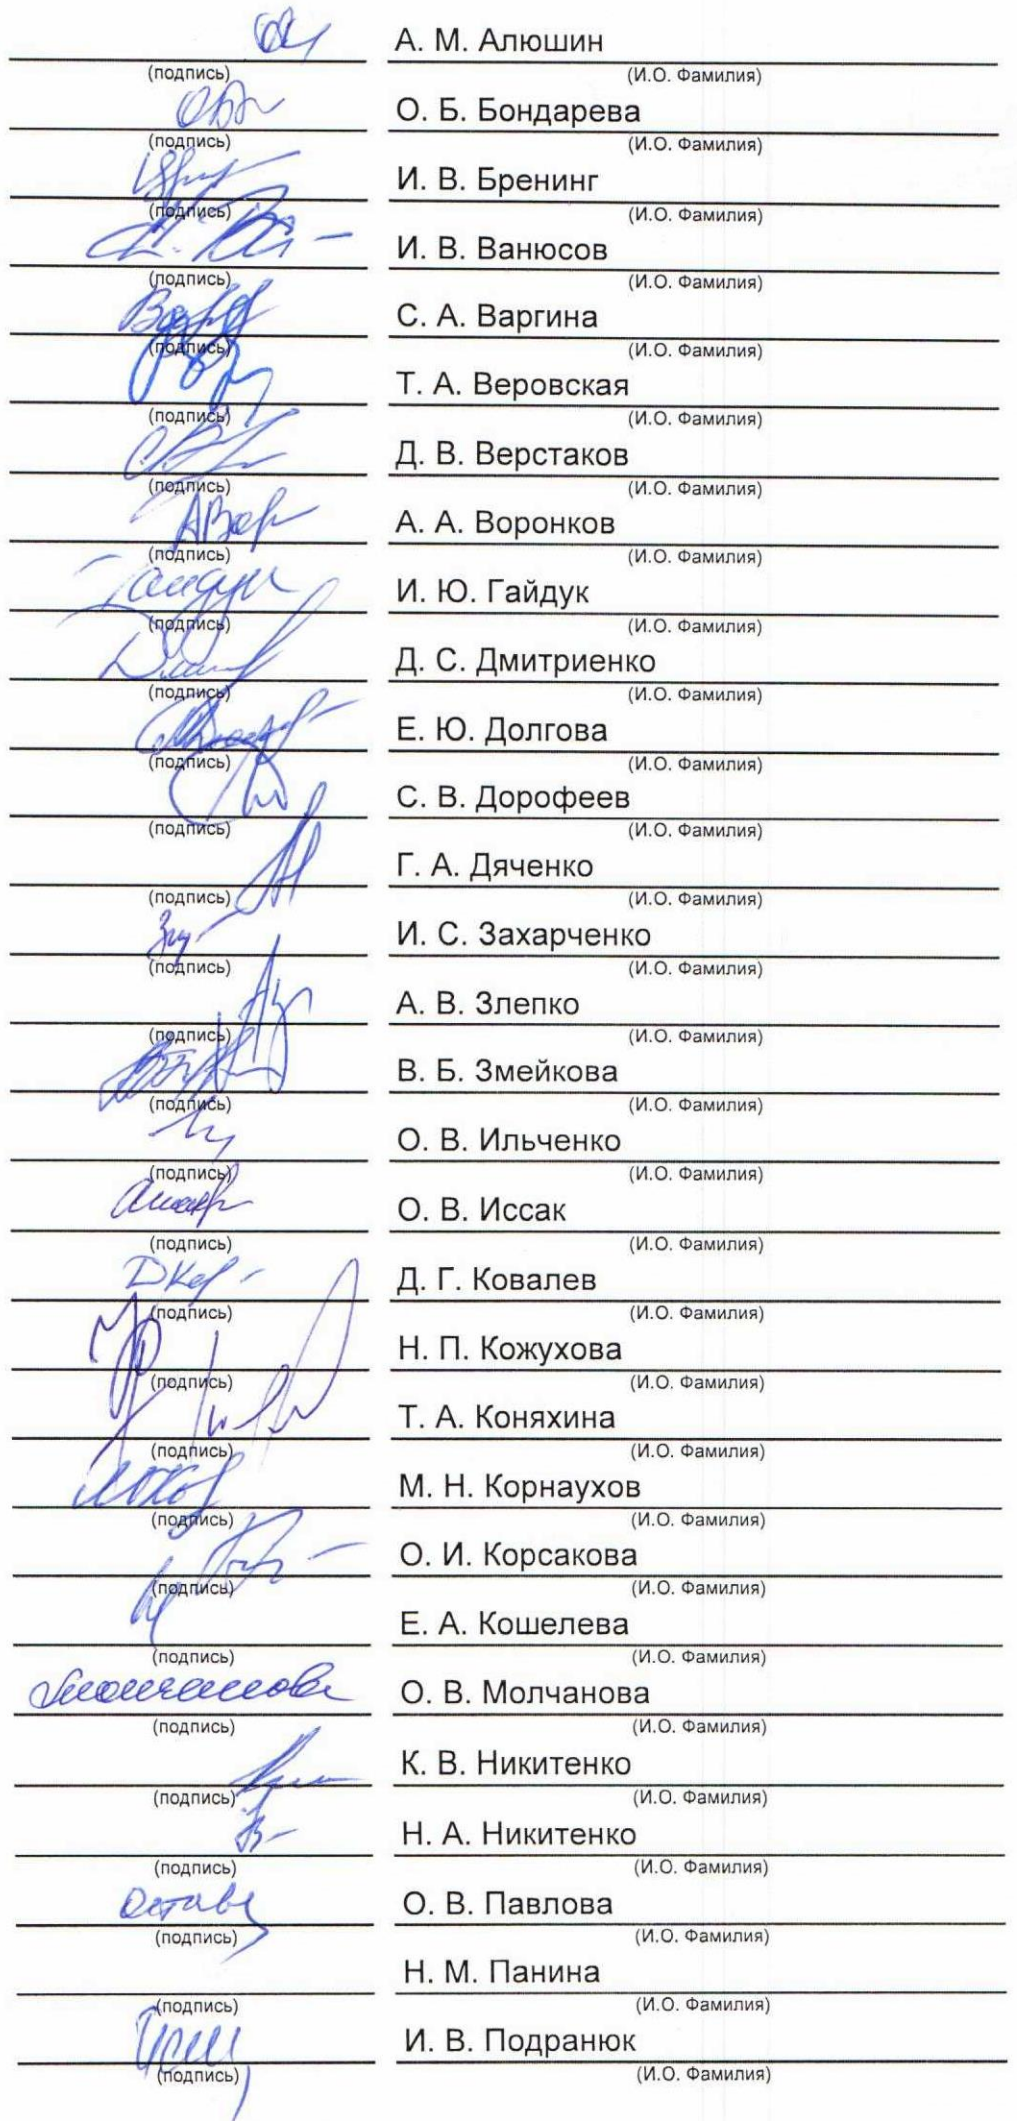 А. М. Алюшин
(подпись) (И.О. Фамилия)
О. Б. Бондарева
(подпись) (И.О. Фамилия)
И. В. Бренинг
(подпись) (И.О. Фамилия)
И. В. Ванюсов
(подпись) (И.О. Фамилия)
С. А. Варгина
(подпись) (И.О. Фамилия)
Т. А. Веровская
(подпись) (И.О. Фамилия)
Д. В. Верстаков
(подпись) (И.О. Фамилия)
А. А. Воронков
(подпись) (И.О. Фамилия)
И. Ю. Гайдук
(подпись) (И.О. Фамилия)
Д. С. Дмитриенко
(подпись) (И.О. Фамилия)
Е. Ю. Долгова
(подпись) (И.О. Фамилия)
С. В. Дорофеев
(подпись) (И.О. Фамилия)
Г. А. Дяченко
(подпись) (И.О. Фамилия)
И. С. Захарченко
(подпись) (И.О. Фамилия)
А. В. Злепко
(подпись) (И.О. Фамилия)
В. Б. Змейкова
(подпись) (И.О. Фамилия)
О. В. Ильченко
(подпись) (И.О. Фамилия)
О. В. Иссак
(подпись) (И.О. Фамилия)
Д. Г. Ковалев
(подпись) (И.О. Фамилия)
Н. П. Кожухова
(подпись) (И.О. Фамилия)
Т. А. Коняхина
(подпись) (И.О. Фамилия)
М. Н. Корнаухов
(подпись) (И.О. Фамилия)
О. И. Корсакова
(подпись) (И.О. Фамилия)
Е. А. Кошелева
(подпись) (И.О. Фамилия)
О. В. Молчанова
(подпись) (И.О. Фамилия)
К. В. Никитенко
(подпись) (И.О. Фамилия)
Н. А. Никитенко
(подпись) (И.О. Фамилия)
О. В. Павлова
(подпись) (И.О. Фамилия)
Н. М. Панина
(подпись) (И.О. Фамилия)
И. В. Подранюк
(подпись) (И.О. Фамилия)